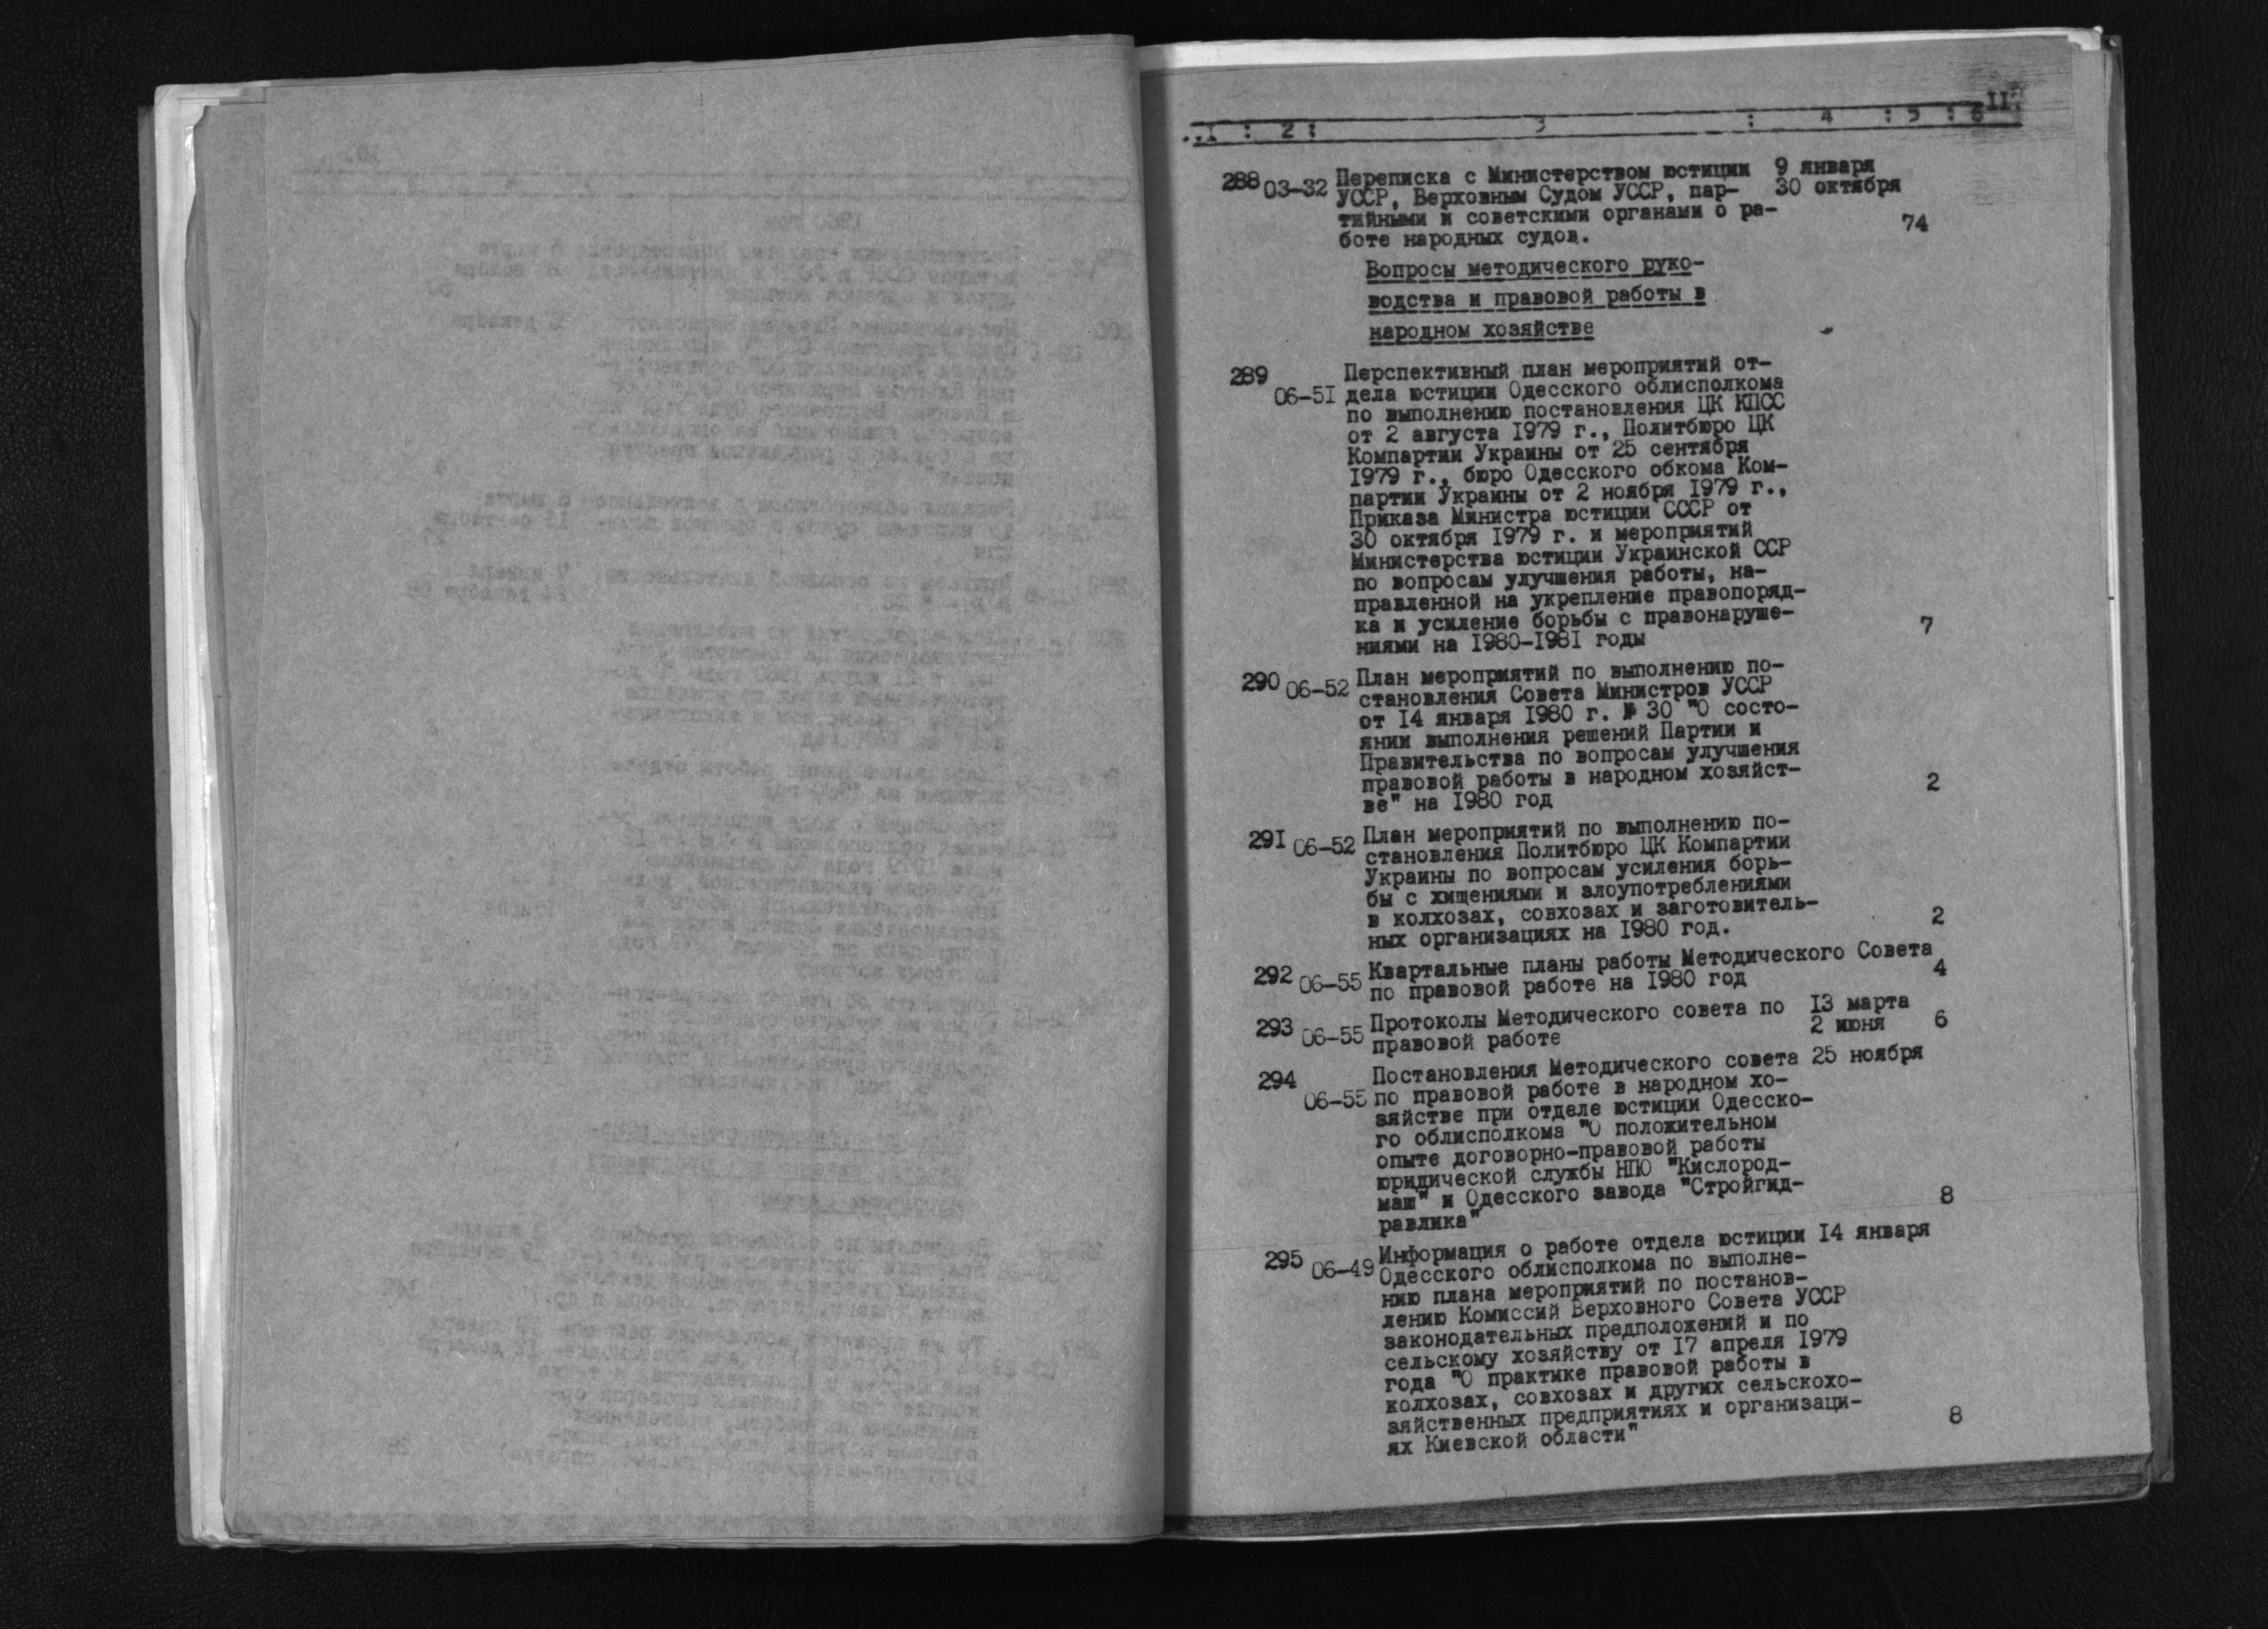 11.
..1 : 2 : 3 : 4 : 5 : 6
288 03-32 Переписка с Министерством юстиции 9 января
УССР, Верховным Судом УССР, пар- 30 октября
тийными и советскими органами о ра-
боте народных судов. 74
Вопросы методического руко-
водства и правовой работы в
народном хозяйстве
289 Перспективный план мероприятий от-
06-51 дела юстиции Одесского облисполкома
по выполнению постановления ЦК КПСС
от 2 августа 1979 г., Политбюро ЦК
Компартии Украины от 25 сентября
1979 г., бюро Одесского обкома Ком-
партии Украины от 2 ноября 1979 г.,
Приказа Министра юстиции СССР от
30 октября 1979 г. и мероприятий
Министерства юстиции Украинской ССР
по вопросам улучшения работы, на-
правленной на укрепление правопоряд-
ка и усиление борьбы с правонаруше-
ниями на 1980-1981 годы 7
290 06-52 План мероприятий по выполнению по-
становления Совета Министров УССР
от 14 января 1980 г. № 30 "О состо-
янии выполнения решений Партии и
Правительства по вопросам улучшения
правовой работы в народном хозяйст-
ве" на 1980 год 2
291 06-52 План мероприятий по выполнению по-
становления Политбюро ЦК Компартии
Украины по вопросам усиления борь-
бы с хищениями и злоупотреблениями
в колхозах, совхозах и заготовитель-
ных организациях на 1980 год. 2
292 06-55 Квартальные планы работы Методического Совета
по правовой работе на 1980 год 4
293 06-55 Протоколы Методического совета по 13 марта
правовой работе 2 июня 6
294 Постановления Методического совета 25 ноября
06-55 по правовой работе в народном хо-
зяйстве при отделе юстиции Одесско-
го облисполкома "О положительном
опыте договорно-правовой работы
юридической службы НПО "Кислород-
маш" и Одесского завода "Стройгид-
равлика" 8
295 06-49 Информация о работе отдела юстиции 14 января
Одесского облисполкома по выполне-
нию плана мероприятий по постанов-
лению Комиссий Верховного Совета УССР
законодательных предположений и по
сельскому хозяйству от 17 апреля 1979
года "О практике правовой работы в
колхозах, совхозах и других сельскохо-
зяйственных предприятиях и организаци-
ях Киевской области" 8